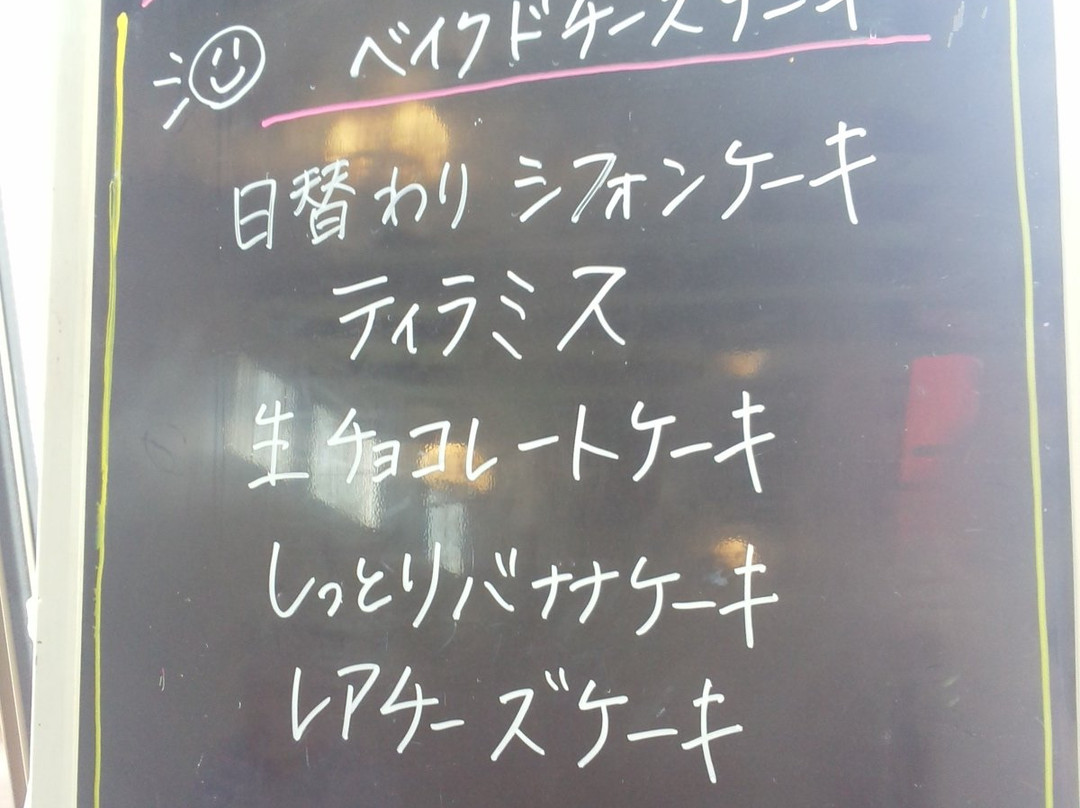 ベイクドチーズケーキ
日替わり シフォンケーキ
ティラミス
生チョコレートケーキ
しっとりバナナケーキ
レアチーズケーキ